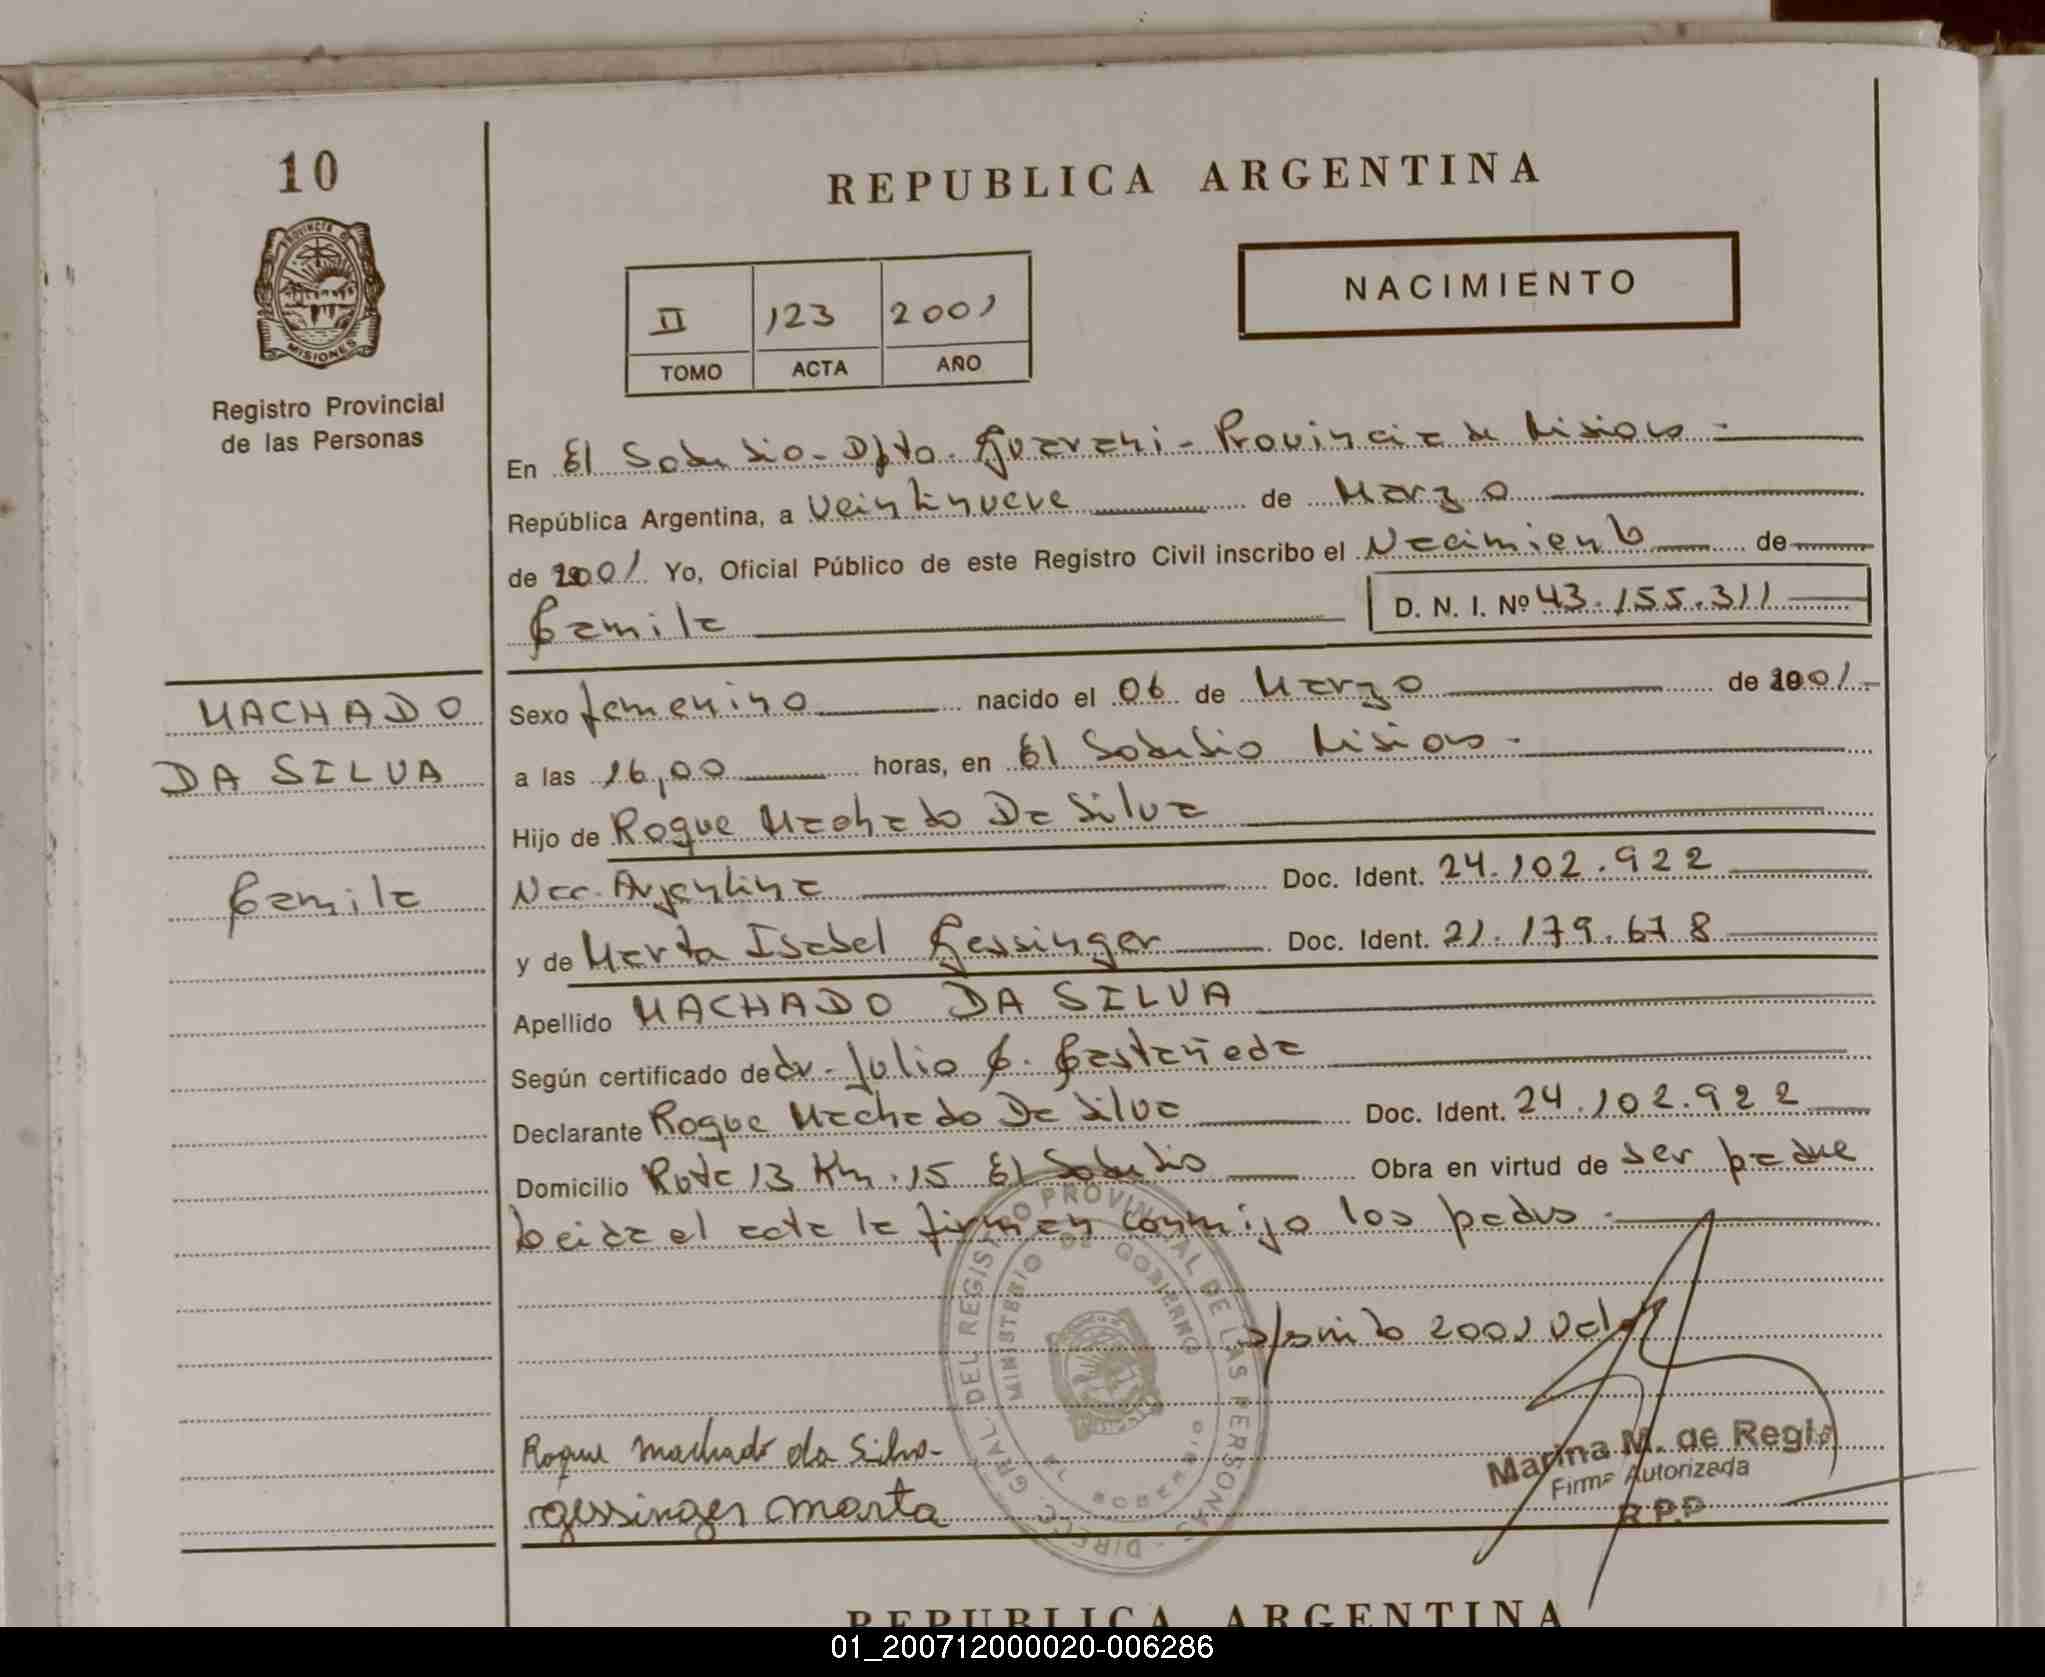 10
PROVINCIA DE
MISIONES
Registro Provincial
de las Personas
REPUBLICA ARGENTINA
II 123 2001
TOMO ACTA AÑO
NACIMIENTO
En El Soberbio - Dpto. Guarani - Provincia de Misiones -
República Argentina, a Veintinueve de Marzo
de 2001 Yo, Oficial Público de este Registro Civil inscribo el Nacimiento de
Camila D. N. I. Nº 43.155.311
MACHADO
DA SILVA
Camila
Sexo femenino nacido el 06 de Marzo de 2001
a las 16,00 horas, en El Soberbio Misiones -
Hijo de Roque Machado Da Silva
Nac. Argentina Doc. Ident. 24.102.922
y de Marta Isabel Gessinger Doc. Ident. 21.179.678
Apellido MACHADO DA SILVA
Según certificado de dr. Julio C. Castañeda
Declarante Roque Machado Da Silva Doc. Ident. 24.102.922
Domicilio Ruta 13 Km. 15 El Soberbio Obra en virtud de ser padre
Leida el acta la firman conmigo los padres -
s/rmdo 2001 Vale
DIREC. GRAL. DEL REGISTRO PROVINCIAL DE LAS PERSONAS
MINISTERIO DE GOBIERNO
EL SOBERBIO
Roque Machado da Silva
gessinger marta
Marina M. de Regis
Firma Autorizada
R.P.P
REPUBLICA ARGENTINA
01_200712000020-006286